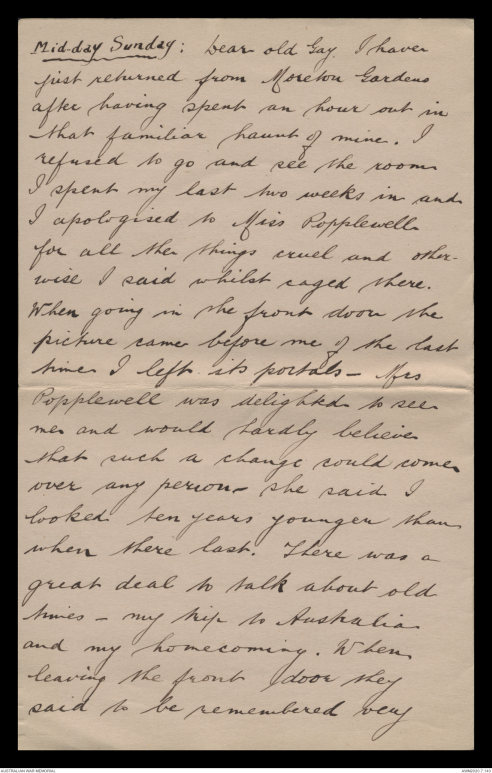 Mid-day Sunday: Dear old Gay I have
just returned from Moreton Gardens
after having spent an hour out in
that familiar haunt of mine. I
refused to go and see the room
I spent my last two weeks in and
I apologised to Miss Popplewell
for all the things cruel and other-
wise I said whilst caged there.
When going in the front door the
picture came before me of the last
time I left its portals - Mrs
Popplewell was delighted to see
me and would hardly believe
that such a change could come
over any person - she said I
looked ten years younger than
when there last. There was a
great deal to talk about old
times - my trip to Australia
and my homecoming. When
leaving the front door they
said to be remembered very
AUSTRALIAN WAR MEMORIAL